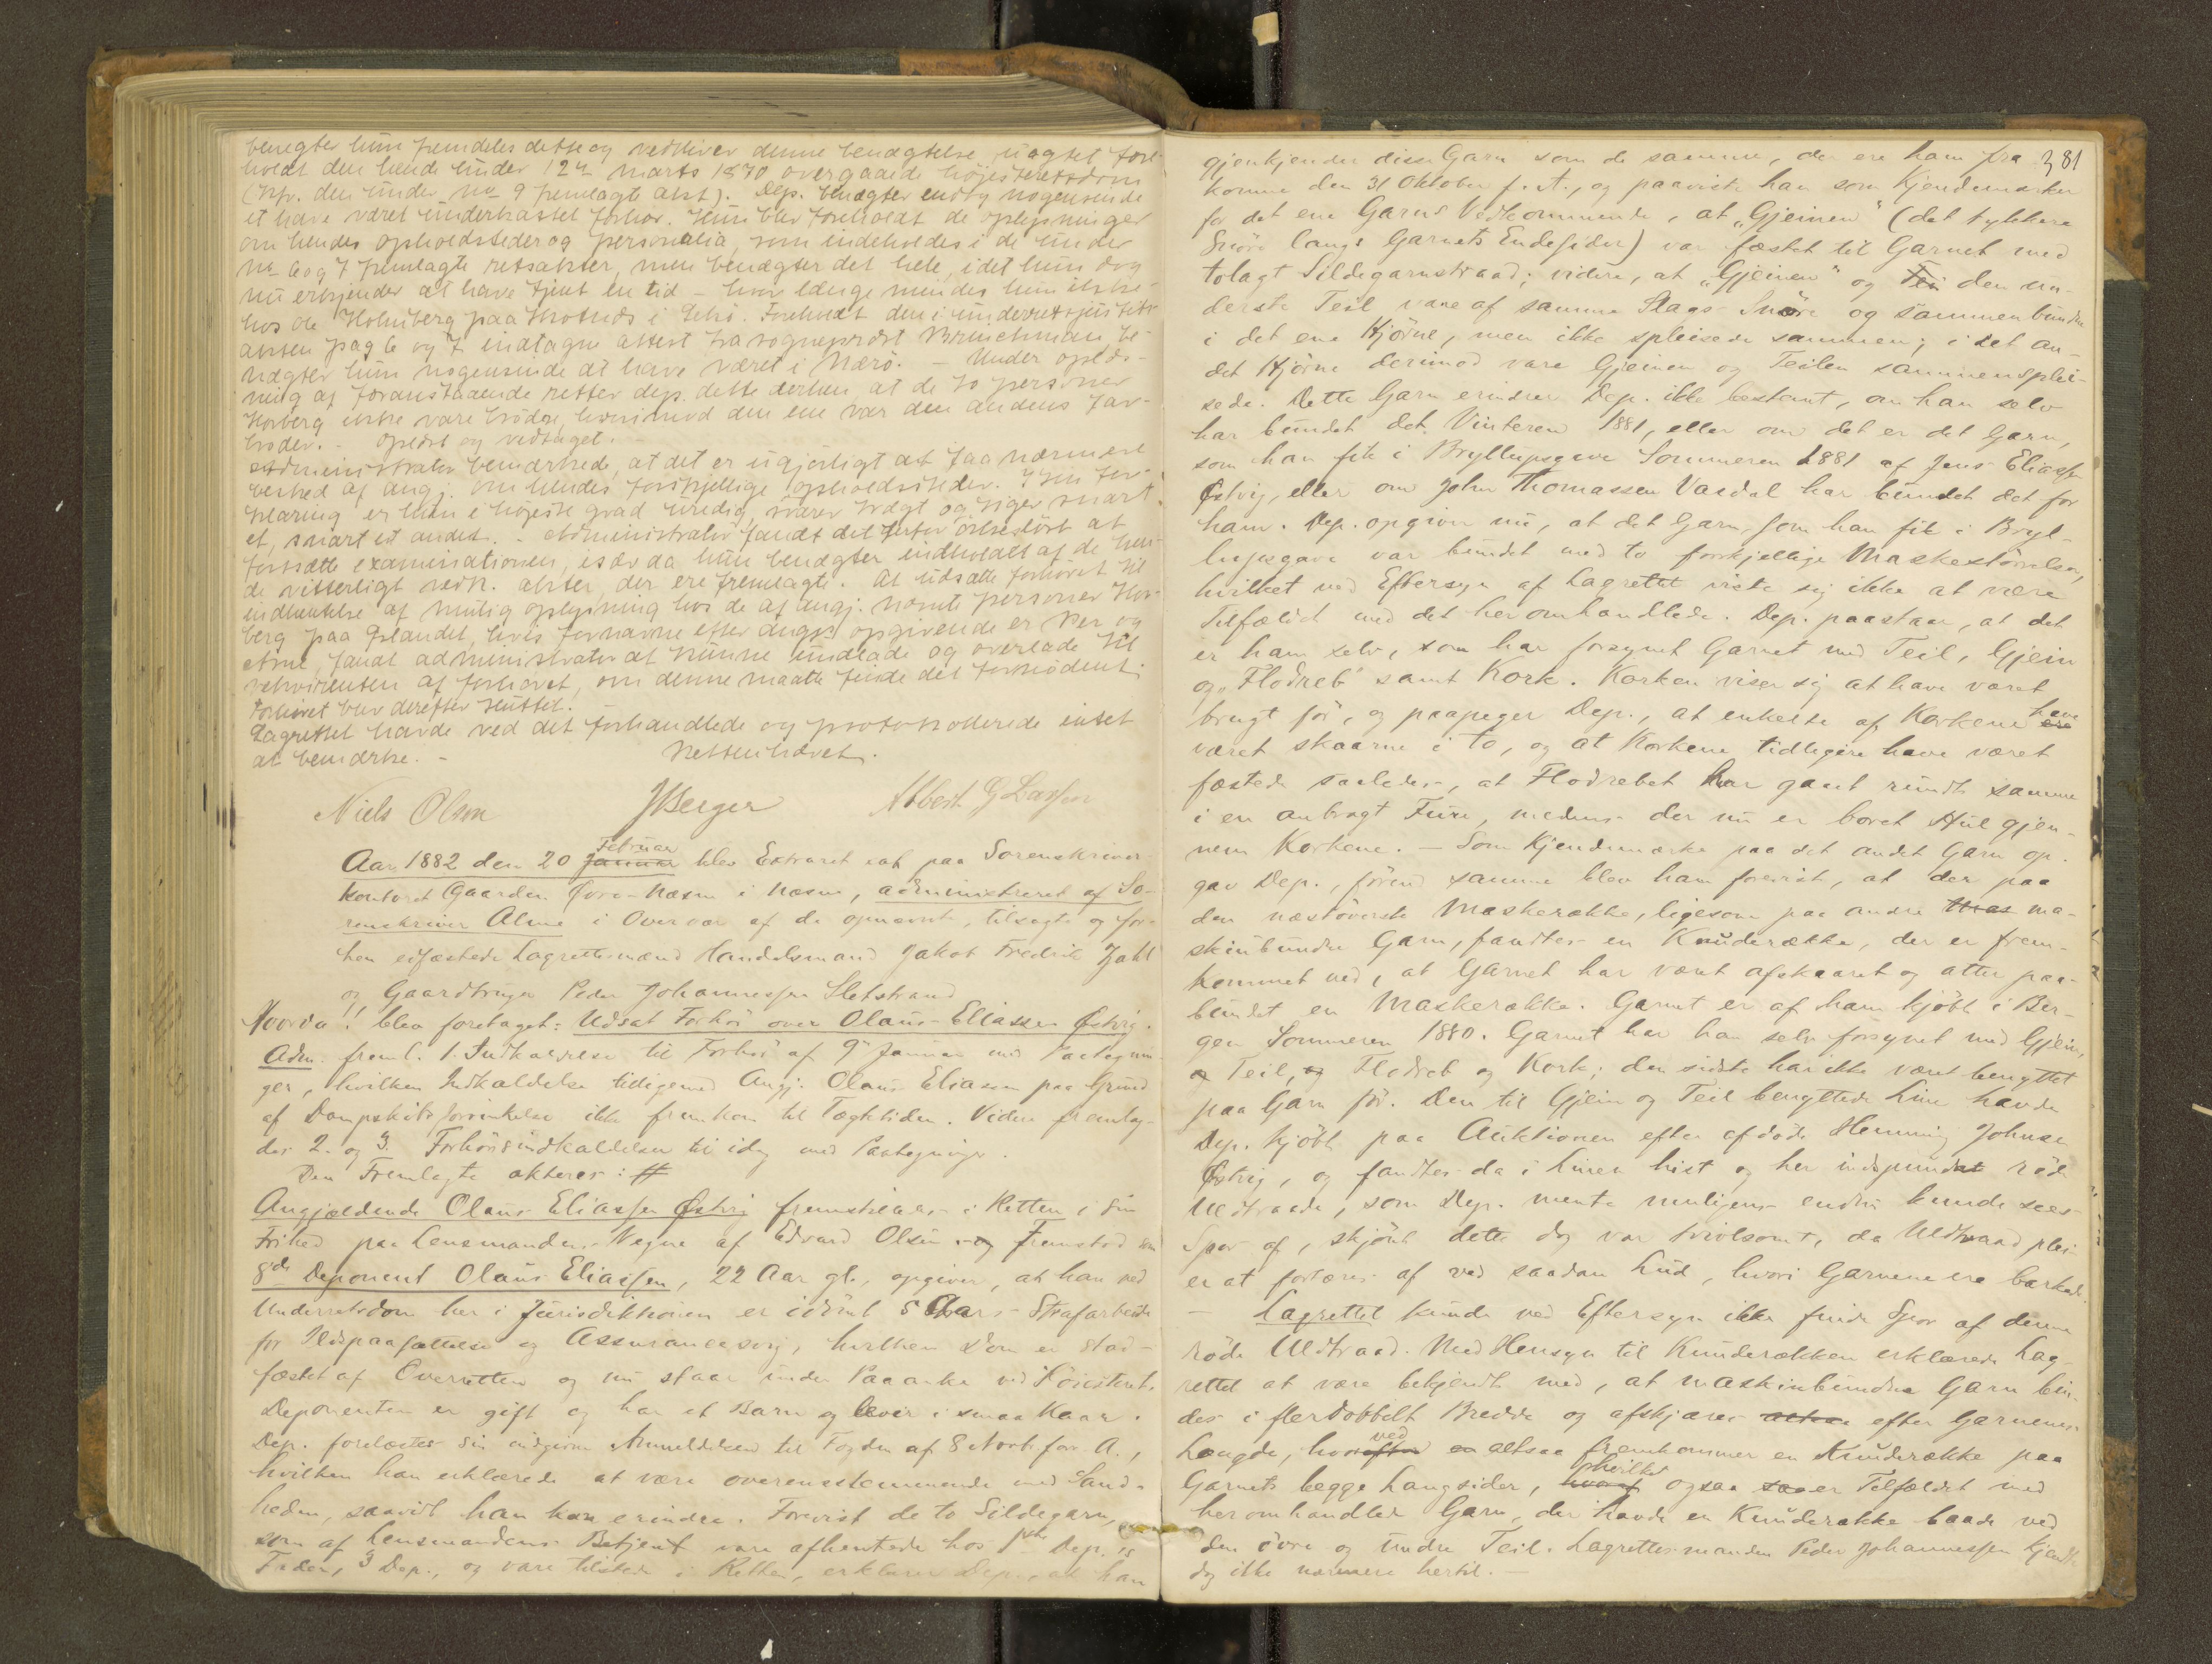 benegter hun fremdeles dette og vedbliver denne benægtelse uagtet fore-
holdt den hende under 12te marts 1870 overgaaede höjesteretsdom
(kfr. den under No 9 fremlagte akst). Dep. benægter endog nogensinde
at have været underkastet forhör. Hun blev foreholdt de oplysninger
om hendes opholdssteder og personalia, som indeholdes i de under
No 6 og 7 fremlagte retsakter, men benægter det hele, idet hun dog
nu erkjender at have tjent en tid - hvor længe mindes hun ikke -
hos de Holmberg paa i Lekö. Foreholdt den i underretsjustits
akten pag 6 og 7 indtagne attest fra sogneprest Brinchman be-
nægter hun nogensinde at have været i Nærö. - Under oplæs-
ning af foranstaaende retter dep. dette derhen, at de to personer
Horberg ikke vare brödre, hvorimod den ene var den andens far-
broder. - Oplæst og vedtaget.
Administrator bemærkede, at det er ugjörligt at faa nærmere
besked af angj. om hendes forskjellige opholdssteder. I sin for-
klaring er hun i højeste grad uredig, svarer trægt og siger snart
et, snart et andet. - Administrator fandt det örkeslöst at
fortsætte examinationen, især da hun benægter indholdet af de hen-
de vitterligt vedk. akter, der ere fremlagte. At udsætte forhöret til
indhentelse af mulig oplysning hos de af angj. nævnte personer Hor-
berg paa Ylandet, hvis fornavne efter angjs opgivende er Per og
Arne, fandt administrator at kunne undlade og overlade til
rekvirenten af forhöret, om denne maatte finde det fornödent.
Forhöret blev derefter sluttet.
Lagrettet havde ved det forhandlede og protokollerede intet
at bemærke. - Retten hævet.
Niels Olsen JBerger Albert G Larsen
Februar
Aar 1882 den 20 Januar blev Extraret sat paa Sorenskriver-
kontoret Gaarden Fore-Næsne i Næsne, administreret af So-
renskriver Alme i Overvær af de opnævnte, tilsagte og for-
hen edfæstede Lagrettemænd Handelsmand Jakob Fredrik Zahl
og Gaardbruger Peder Johannessen Sletstrand
Hvorda!! blev foretaget: Udsat Forhör over Olaus Eliassen Östvig.
Adm. freml. 1. Indkaldelse til Forhör af 9de Januar med Paategnin-
ger, hvilken Indkaldelse tilligemed Angj. Olaus Eliassen paa Grund
af Dampskibsforsinkelse ikke fremkom til Tægtetiden. Videre fremlag-
des 2. og 3. Forhörsindkaldelser til idag med Paategninger.
Den Fremlagte akteres: #
Angjældende Olaus Eliassen Östvig fremstilles i Retten i sin
Frihed paa Lensmandens Vegne af Edvard Olsen og fremstod som
8de Deponent Olaus Eliassen, 22 Aar gl., opgiver, at han ved
Underretsdom her i Jurisdiktionen er idömt 5 Aars Strafarbeide
for Ildspaasættelse og Assurancesvig, hvilken Dom er stad-
fæstet af Overretten og nu staar under Paaanke ved Höiesteret.
Deponenten er gift og har et Barn og lever i smaa Kaar.
Dep. forelæstes sin indgivne Anmeldelse til Fogden af 8 Novb. for. A.,
hvilken han erklærede at være overensstemmende med Sand-
heden, saavidt han kan erindre. Forevist de to Sildegarn,
som af Lensmandens Betjent vare afhentede hos 1ste Dep.'s
Fader, 3 Dep., og vare tilstede i Retten, erklærer Dep., at han
381
gjenkjender disse Garn som de samme, der ere ham fra-
komne den 31 Oktober f. A., og paaviste han som Kjendemærker
for det ene Garns Vedkommende, at „Gjeinen" (det tykkere
Snöre langs Garnets Endesider) var fæstet til Garnet med
tolagt Sildegarnstraad; videre, at „Gjeinen" og Tei den un-
derste Teil vare af samme Slags Snöre og sammenbundne
i det ene Hjörne, men ikke spleisede sammen; i det an-
det Hjörne derimod vare Gjeinen og Teilen sammensplei-
sede. Dette Garn erindrer Dep. ikke bestemt, om han selv
har bundet det Vinteren 1881, eller om det er det Garn,
som han fik i Bryllupsgave Sommeren 1881 af Jens Eliassen
Östvig, eller om John Thomassen Vasdal har bundet det for
ham. Dep. opgiver nu, at det Garn, som han fik i Bryl-
lupsgave var bundet med to forskjellige Maskestörrelser,
hvilket ved Eftersyn af Lagrettet viste sig ikke at være
Tilfældet med det heromhandlede. Dep. paastaar, at det
er ham selv, som har forsynet Garnet med Teil, Gjein
og „Flodreb" samt Kork. Korken viser sig at have været
brugt för, og paapeger Dep., at enkelte af Korkene have ere
været skaarne i to, og at Korkene tidligere have været
fæstede saaledes, at Flodrebet har gaaet rundt samme
i en anbragt Fure, medens der nu er boret Hul gjen-
nem Korkene. - Som Kjendemærke paa det andet Garn op-
gav Dep., förend samme blev ham forevist, at der paa
den næstöverste Maskerække, ligesom paa andre Mas ma-
skinbundne Garn, fandtes en Knuderække, der er frem-
kommet ved, at Garnet har været afskaaret og atter paa-
bundet en Maskerække. Garnet er af ham kjöbt i Ber-
gen Sommeren 1880. Garnet har han selv forsynet med Gjein,
og Teil, og Flodreb og Kork; den sidste har ikke været benyttet
paa Garn för. Den til Gjein og Teil benyttede Line havde
Dep. kjöbt paa Auktionen efter afdöde Henning Johnsen
Östvig, og fandtes da i Linen hist og her indspundet röd
Uldtraade, som Dep. mente muligens endnu kunde sees
Spor af, skjönt dette dog var tvivlsomt, da Uldtraad plei-
er at fortæres af ved saadan Lud, hvori Garnene ere barkede.
- Lagrettet kunde ved Eftersyn ikke finde Spor af denne
röde Uldtraad. Med Hensyn til Knuderækken erklærede Lag-
rettet at være bekjendt med, at maskinbundne Garn bin-
des i flerdobbelt Bredde og afskjæres efter Garnenes
Længde, hvorefter ved en altsaa fremkommer en Knuderække paa
Garnets begge Langsider, hvilket ogsaa saa er Tilfældet med
heromhandlede Garn, der havde en Knuderække baade ved
den övre og undre Teil. Lagrettesmanden Peder Johannessen kjendte
dog ikke nærmere hertil. -